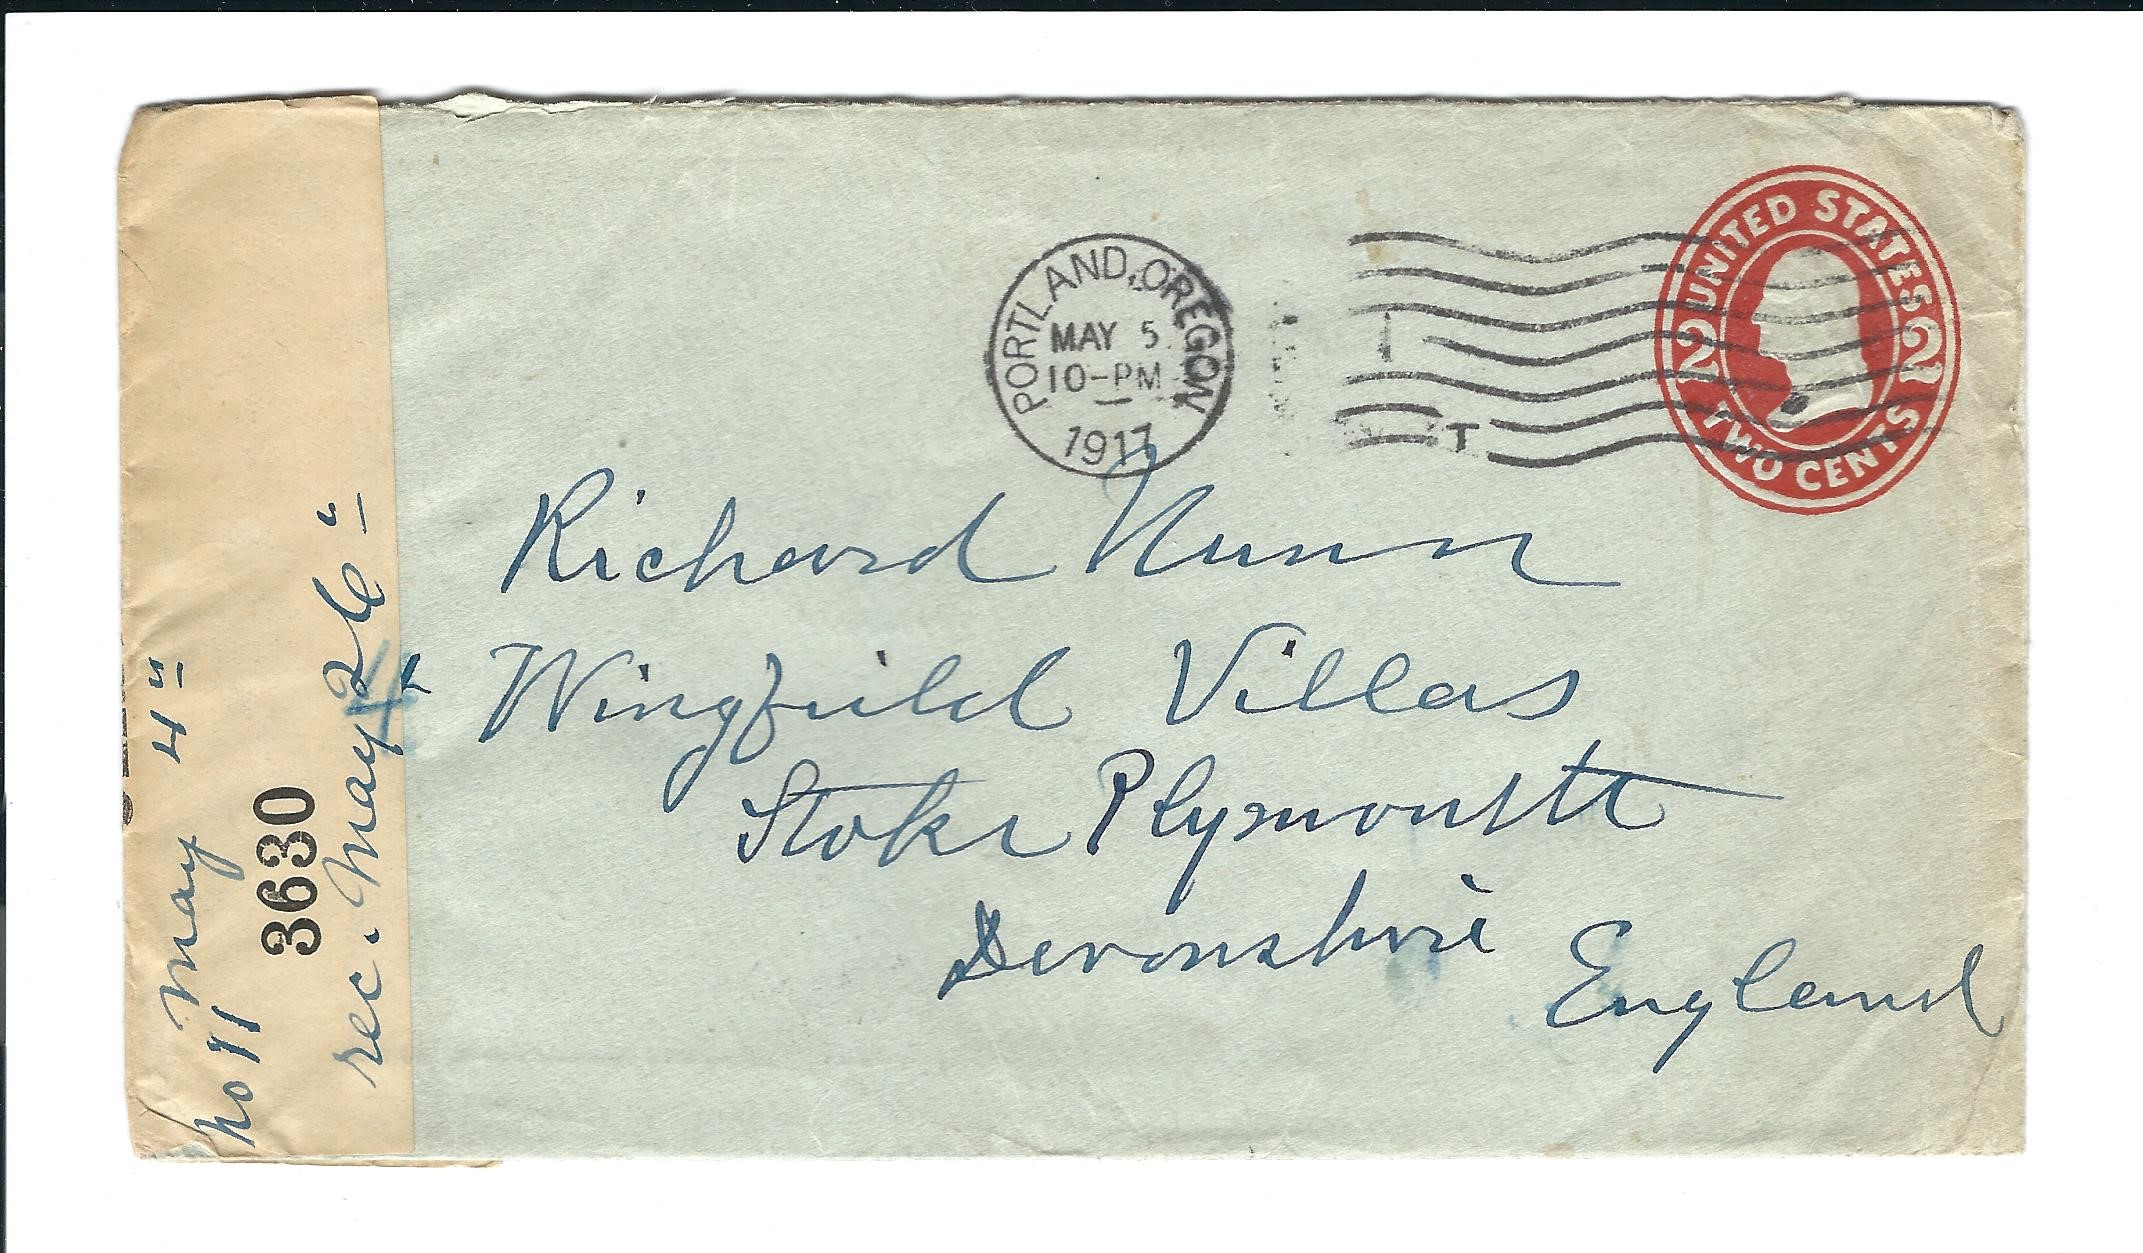 PORTLAND, OREGON
MAY 5
10-PM
1917
T
UNITED STATES
2 2
TWO CENTS
Richard Nunn
4 Wingfield Villas
Stoke Plymouth
Devonshire
England
No 11 May 4"
3630
rec. May 26"